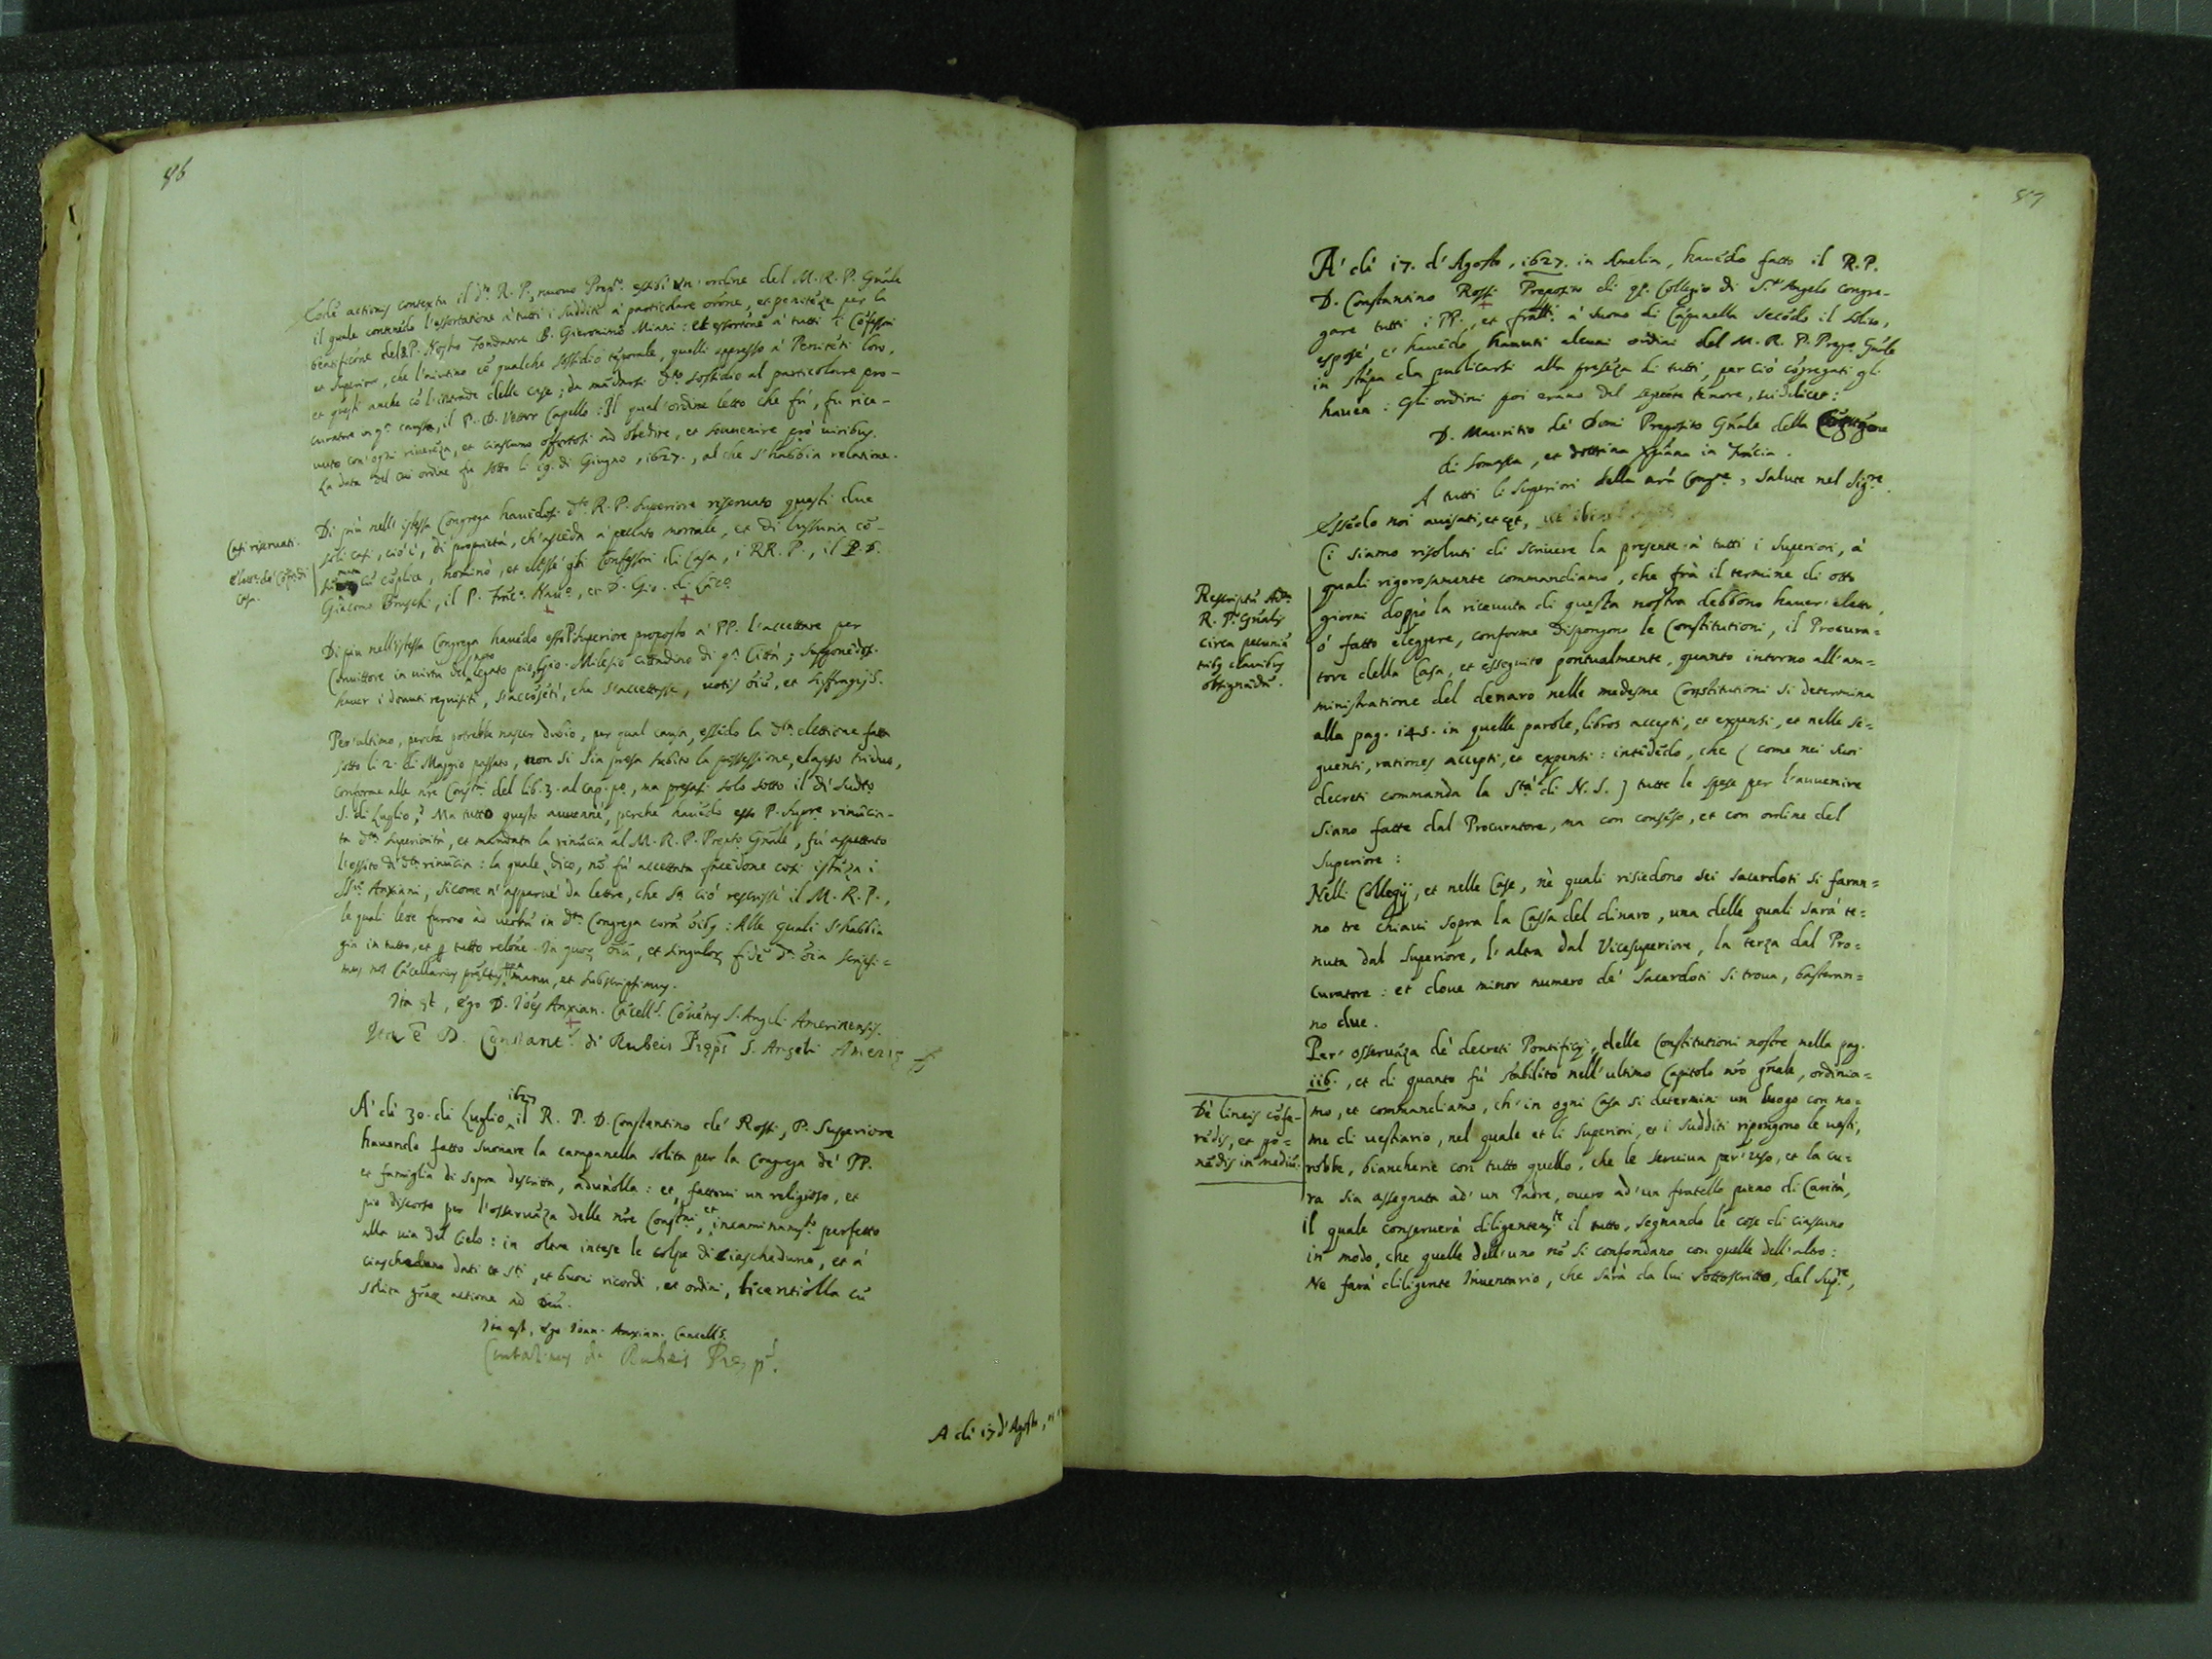 86
Eodē actionis contextu il dᵒ. R. P., nuouo Prepᵗᵒ. essibì un' ordine del M. R. P. Gñale
il quale contenēdo l'essortatione à tutti i sudditi à particolare orōne, et penitēze per la
beatificōne del P. Nostro Fondatore B. Gieronimo Miani: et essortōne à tutti li Cōfessori
et Superiori, che l'aiutino cō qualche sossidio tēporale, quelli appresso à Penitēti loro,
et questi anche cō l'intrade delle case; da mādarsi dᵗᵒ sossidio al particolare pro-
curatore in qᵃ causa, il P. D. Vettor Capello: Il qual' ordine letto che fù, fu rice-
uuto con' ogni riuerēza, et ciascuno offertosi ad obedire, et souuenire prò uiribus.
La data del cui ordine fu sotto li 19. di Giugno, 1627., al che s'habbia relatione.
Casi riseruati.
Di più nell' istessa Congrega hauēdosi dᵗᵒ R. P. Superiore riseruato questi due
soli casi, cio è, di proprietà, ch'ascēda à peccato mortale, et di lussuria cō-
cū cōplice, nominò, et elesse gli Confessori di Casa, i RR. P., il P. D.
Giacomo Bruschi, il P. Frāᶜᵒ. Nauᵒ., et D. Gio. di Cāᶜᵒ.
Casa.
Di più nell'istessa Congrega hauēdo esso P. Superiore proposto à PP. l'accettare per
Conuittore in uirtù del nr̄o legato pio, Gio. Milesio cittadino di qᵃ Città; supponēdosi
hauer i douuti requisiti, s'accōsētì, che s'accettasse, uotis ōiū, et suffragijs.
Per' ultimo, perche potrebbe nascer dubio, per qual causa, essēdo la dᵗᵃ elettione fatta
sotto li 2. di Maggio passato, non si sia presa subito la possessione, elapso triduo,
conforme alle nr̄e Constⁿⁱ del lib. 3. al cap. pᵒ., ma presasi solo sotto il dì sudᵗᵒ
5. di Luglio,? Ma tutto questo auuenne, perche hauēdo esso P. Supʳᵉ. rinūcia-
ta dᵗᵃ superiorità, et mandata la rinūcia al M. R. P. Prepᵗᵒ Gñale, fù aspettato
l'essito di dᵗᵃ rinūcia: la quale, dico, nō fù accettata facēdone cosi istāza i
SSʳⁱ Anziani, sicome n'apparue da lettre, che sᵃ ciò rescrisse il M. R. P.,
le quali lette furono ad uerbū in dᵗᵃ Congrega corā ōibꝰ: Alle quali s'habbia
gia in tutto, et ꝑ tutto relōne. In quoꝝ ōiū, et singuloꝝ fidē dᵃ ōia scripsi-
mus nos Cācellarius pr̄ᵗᵘˢ ... manu, et subscripsimus.
Ita est, Ego D. Ioēs Anxian. Cācellˢ. Cōuētus S. Angeli Amerinensis.
Ita ē D. Constantˢ. di Rubeis Prepᵗˢ S. Angeli Ameriæ
A' dì 30. di Luglio 1627 il R. P. D. Constantino de' Rossi, P. Superiore
hauendo fatto suonare la campanella solita per la Congrega de' PP.
et famiglia di sopra descritta, adunòlla: et fattoui un religioso, et
pio discorso per l'osseruāza delle nr̄e Constⁿⁱ, et incaminamᵗᵒ perfetto
alla uia del Cielo: in oltre intese le colpe di ciascheduno, et à
ciascheduno dati et sᵗⁱ, et buoni ricordi, et ordini, licentiòlla cū
solita grāꝝ actione ad Deū.
Ita est, Ego Ioan. Anxian. Cancellˢ.
Constantinus de Rubeis Prepᵗ.
A dì 17 d'Agosto,
87
A' dì 17. d'Agosto, 1627. in Amelia, hauēdo fatto il R. P.
D. Constantino Rossi Preposito di qᵗᵒ. Collegio di S.ᵗ Angelo congre-
gare tutti i PP., et fratti. à suono di Cāpanella secōdo il solito,
espose, c'hauēdo hauuti alcuni ordini del M. R. P. Prepᵒ Gñale
in stāpa da publicarsi alla presēza di tutti, per ciò cōgregati gli
hauea: Gli ordini poi erano del seguēte tenore, uidelicet:
D. Mauritio de' Domi Preposito Gñale della Cōgregōne
di Somasca, et dottrina xp̄iana in Frācia.
A tutti li Superiori della nr̄a Congⁿᵉ, salute nel Sigʳᵉ.
Essēdo noi auisati, et cęt,
Ci siamo risoluti di scriuere la presente à tutti i Superiori, à
quali rigorosamente commandiamo, che frà il termine di otto
giorni doppò la riceuuta di questa nostra debbono hauer' eletto,
ò fatto eleggere, conforme dispongono le Constitutioni, il Procura=
tore della Casa, et esseguito pontualmente, quanto intorno all'am=
ministratione del denaro nelle medesme Constitutioni si determina
alla pag. 145. in quelle parole, libros accepti, et expensi, et nelle se=
guenti, rationes accepti, et expensi: intēdēdo, che (come nei suoi
decreti commanda la Sᵗᵃ di N. S.) tutte le spese per l'auuenire
siano fatte dal Procuratore, ma con consēso, et con ordine del
Superiore:
Rescriptū Adᵐ.
R. P. Gñalis
circa pecuniā
tribꝰ clauibus
obsignādā.
Nelli Collegij, et nelle Case, nè quali risiedono sei sacerdoti si faran=
no tre chiaui sopra la Cassa del dinaro, una delle quali sarà te=
nuta dal Superiore, l'altra dal Vicesuperiore, la terza dal Pro=
curatore: et doue minor numero de' sacerdoti si troua, bastaran=
no due.
Per' osseruāza de' decreti Pontificij, delle Constitutioni nostre nella pag.
116., et di quanto fù stabilito nell'ultimo Capitolo nr̄o gñale, ordinia=
mo, et commandiamo, ch'in ogni Casa si determini un luogo con no=
me di uestiario, nel quale et li Superiori, et i sudditi ripongono le uesti,
robbe, biancherie con tutto quello, che le seruiua per' uso, et la cu=
ra sia assegnata ad' un Padre, ouero ad' un fratello pieno di Carità,
il quale conseruerà diligentemᵗᵉ il tutto, segnando le cose di ciascuno
in modo, che quelle dell'uno nō si confondano con quelle dell'altro:
Ne farà diligente Inuentario, che sarà da lui sottoscritto, dal Supʳᵉ,
De lineis cōse-
rādis, et po=
nēdis in mediū.